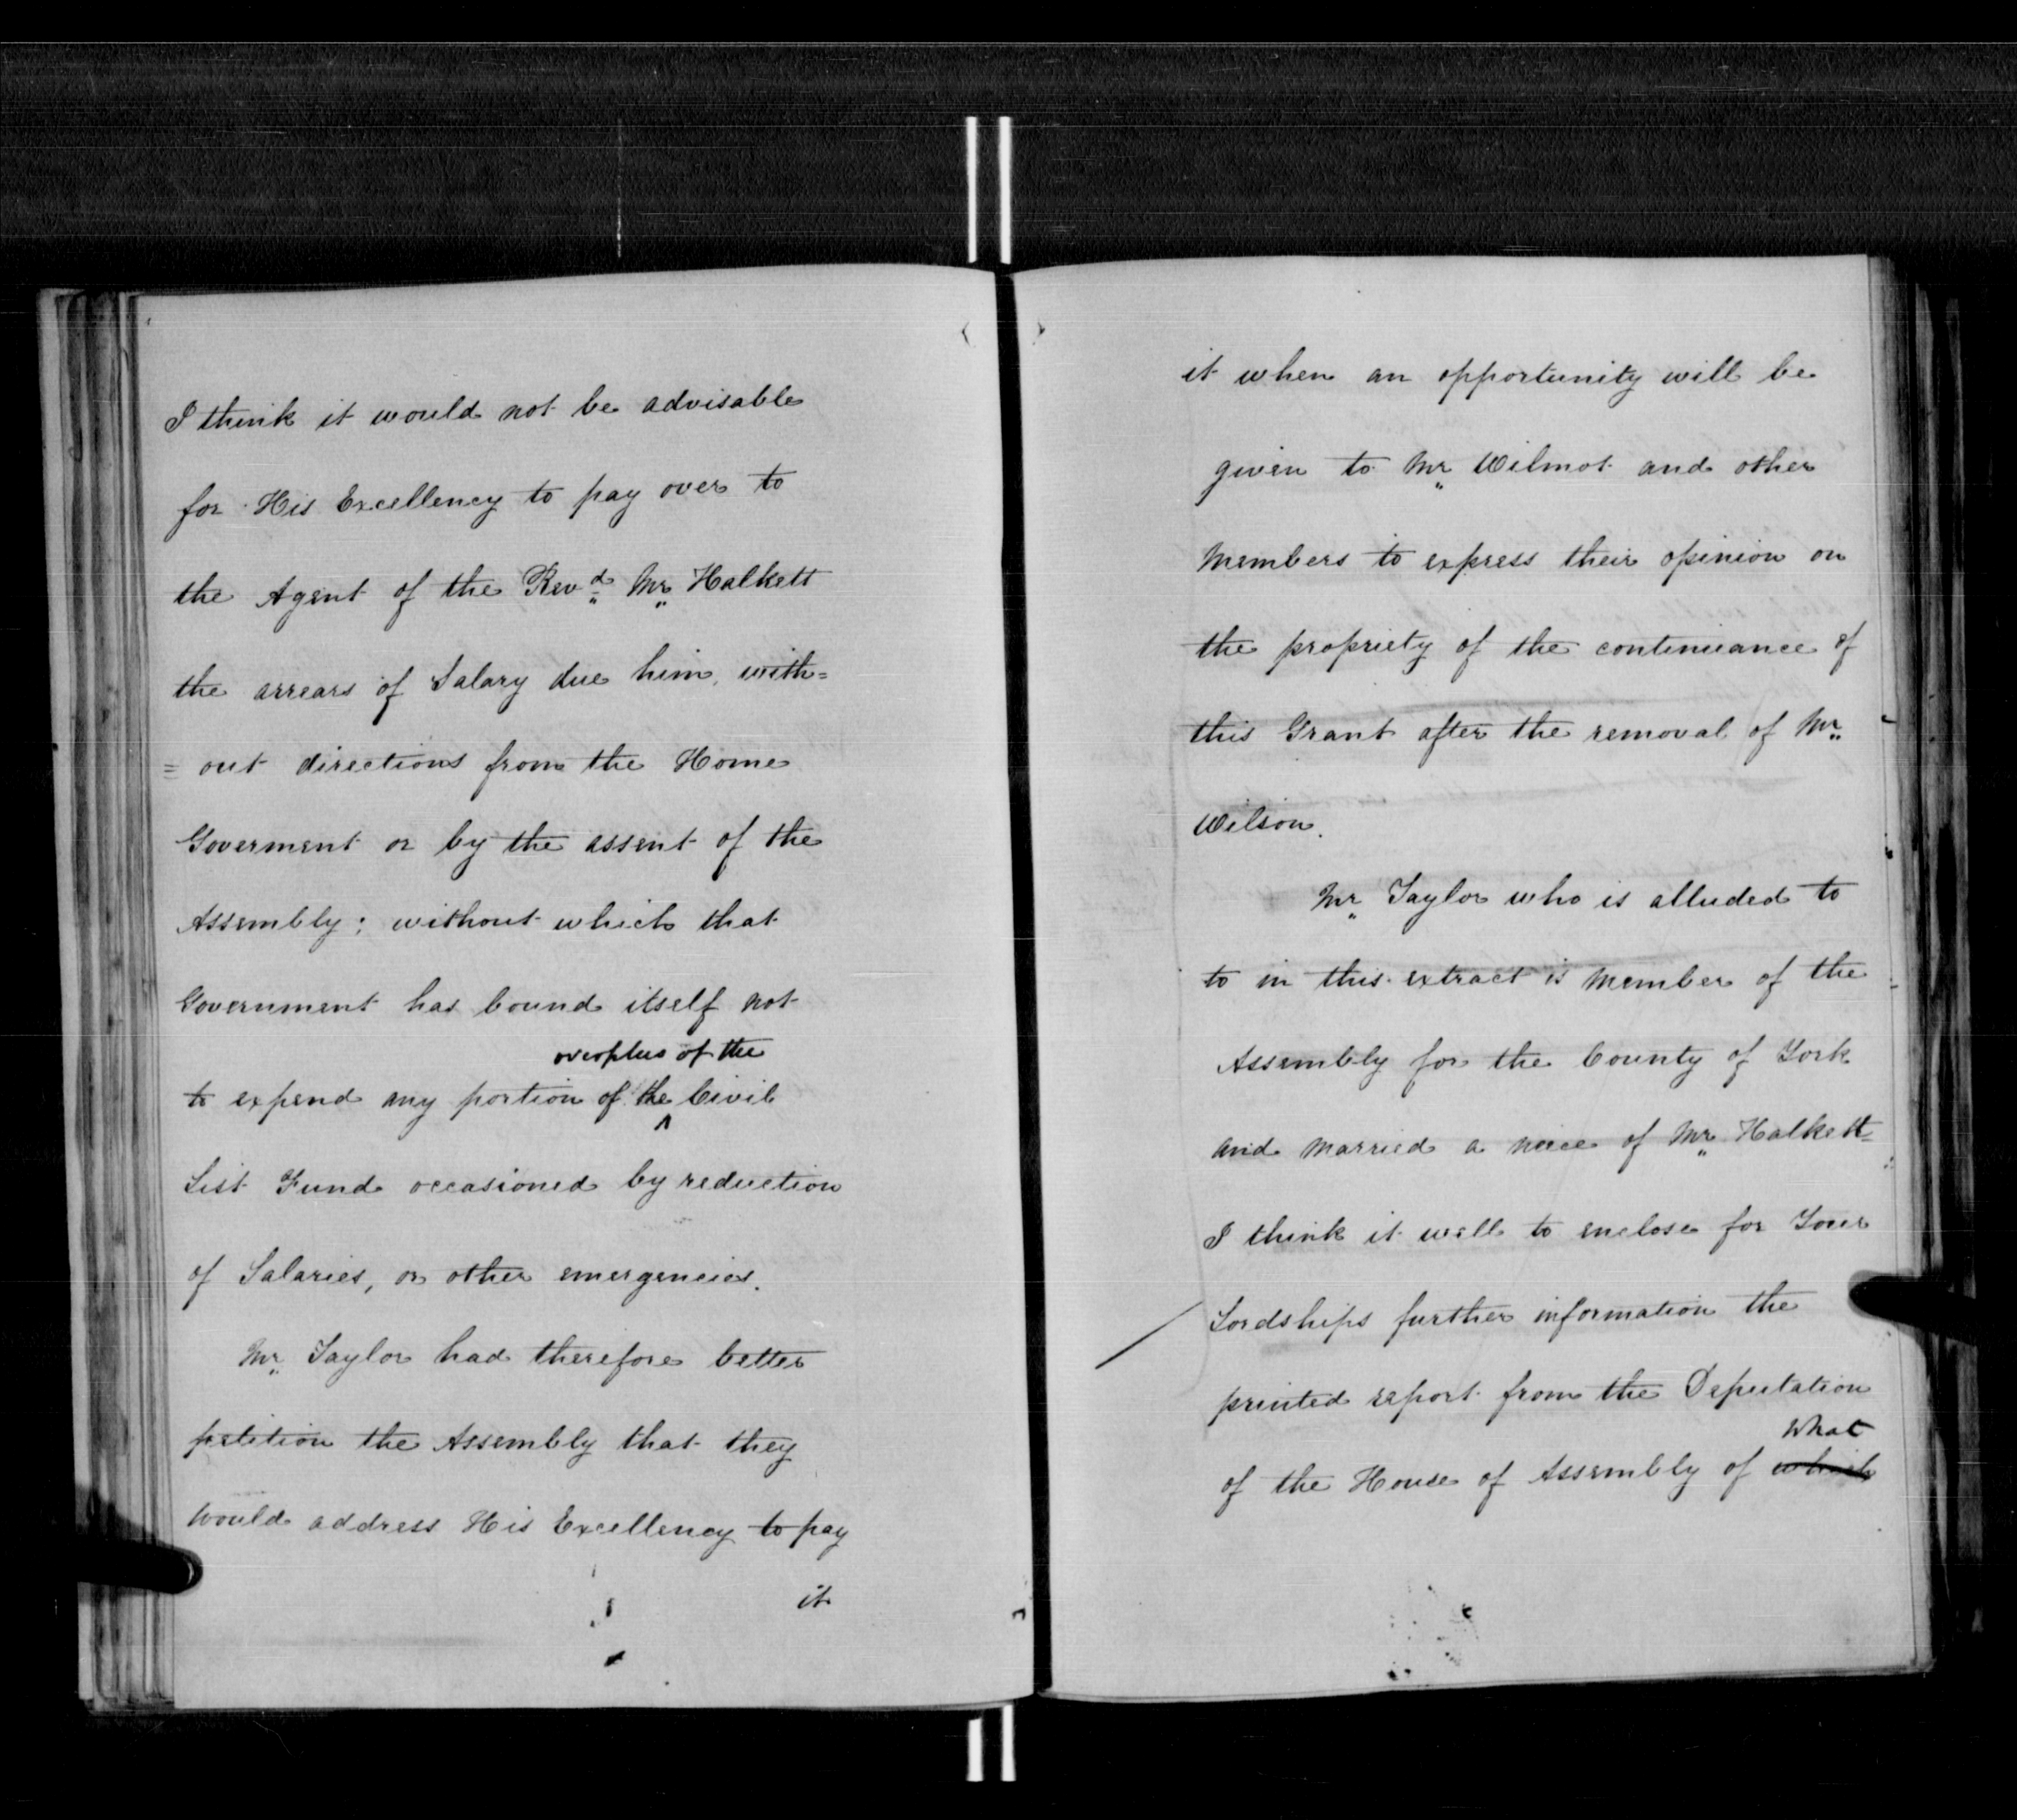 I think it would not be advisable
for His Excellency to pay over to
the Agent of the Revd Mr Halkett
the arrears of Salary due him, with=
= out directions from the Home
Goverment or by the assent of the
Assembly; without which that
Government has bound itself not
overplus of the
to expend any portion of the Civil
List Fund occasioned by reduction
of Salaries, or other emergencies.
Mr Taylor had therefore better
petition the Assembly that they
would address His Excellency to pay
it
it when an opportunity will be
given to Mr Wilmot and other
Members to express their opinion on
the propriety of the continuance of
this Grant after the removal of Mr
Wilson.
Mr Taylor who is alluded to
to in this extract is Member of the
Assembly for the County of York
and married a neice of Mr Halkett=
I think it well to enclose for Your
Lordships further information the
printed report from the Deputation
What
of the House of Assembly of which